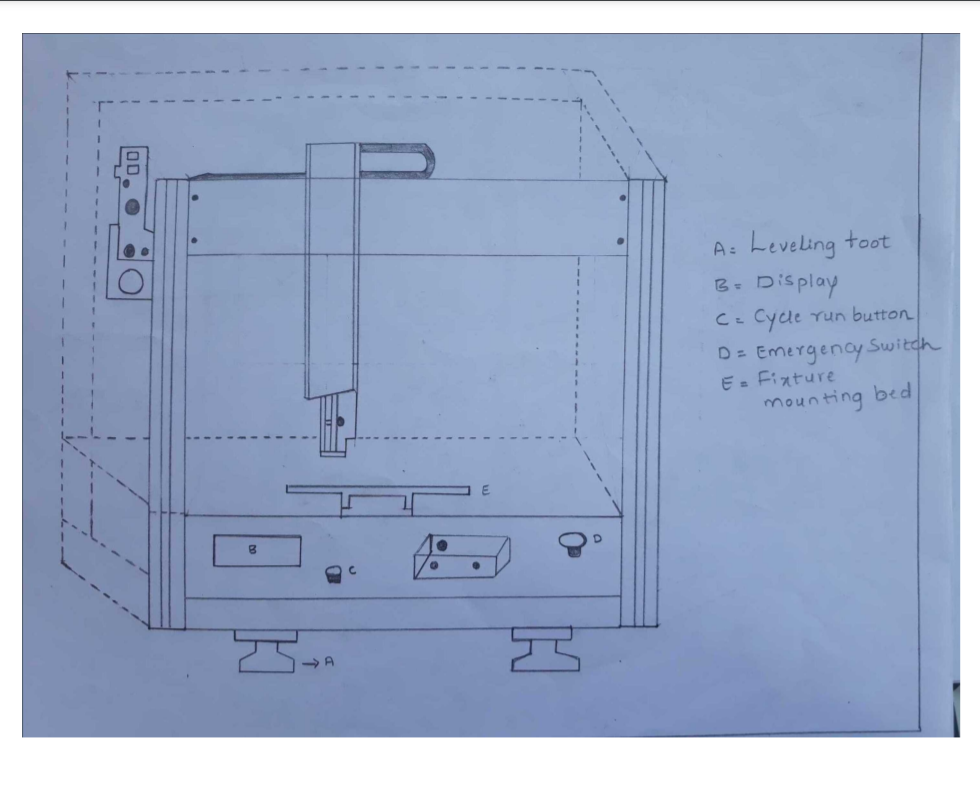 A = Leveling foot
B = Display
C = Cycle run button
D = Emergency Switch
E = Fixture
mounting bed
E
B
C
D
→ A